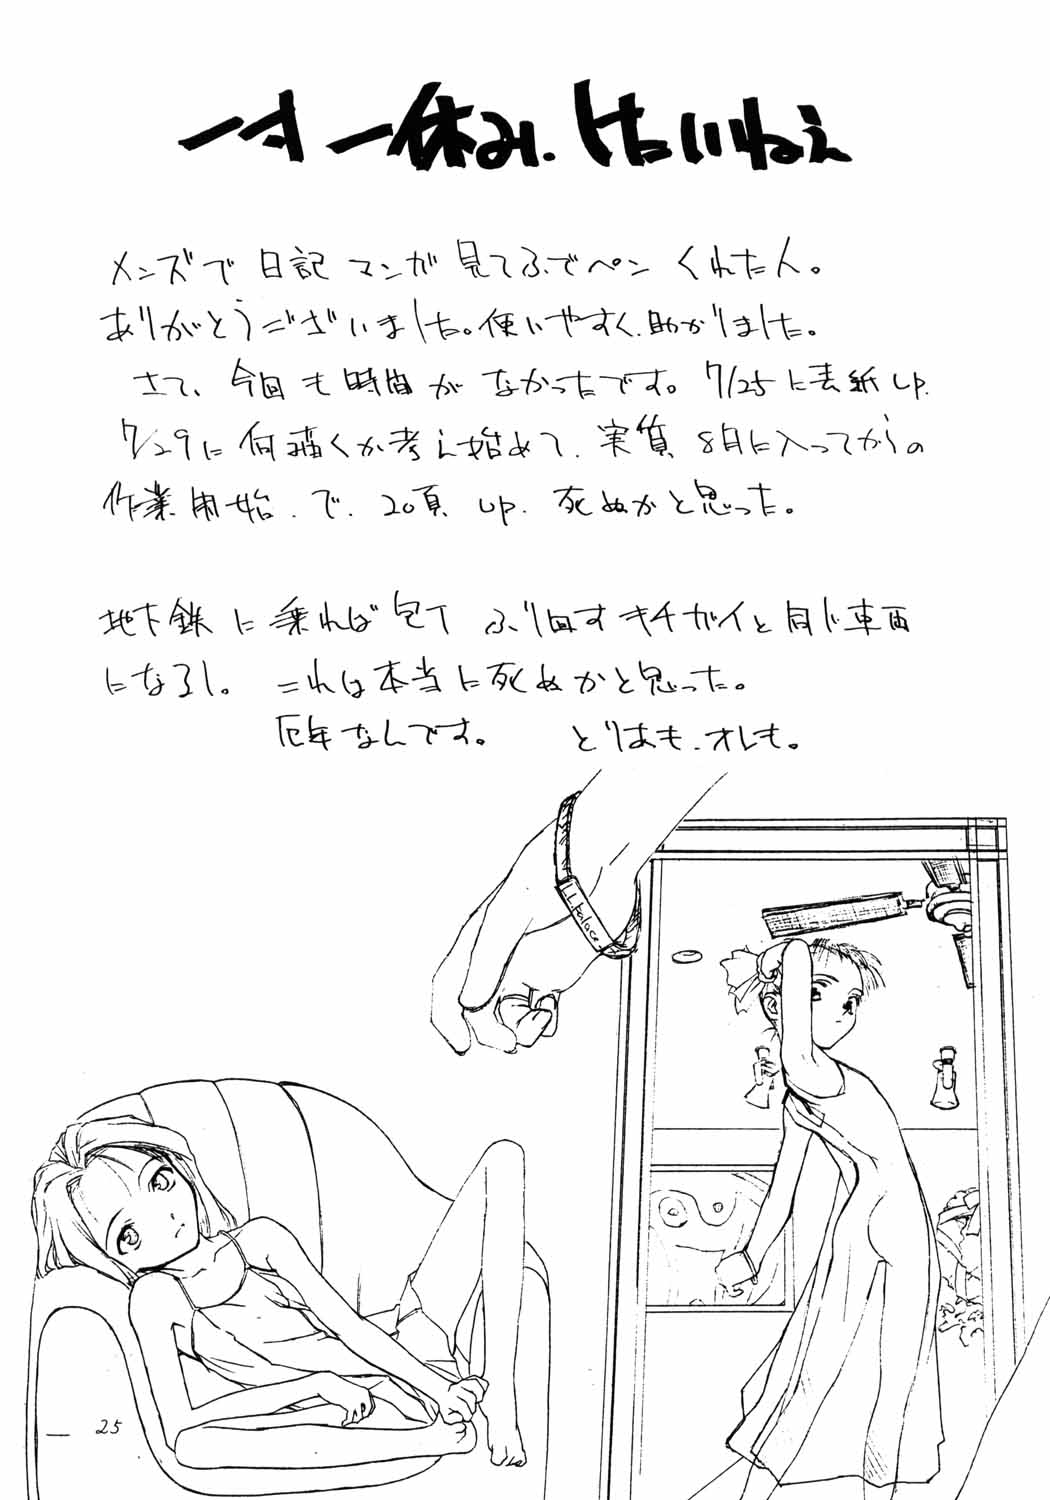 一寸一休み、したいねえ
メンズで日記マンガ見てふでペンくれた人。
ありがとうございました。使いやすく、助かりました。
さて、今回も時間がなかったです。7/25に表紙up.
7/29に何描くか考え始めて、実質8月に入ってからの
作業開始.で、20頁up.死ぬかと思った。
地下鉄に乗れば包丁ふり回すキチガイと同じ車両
になるし。これは本当に死ぬかと思った。
厄年なんです。とりあも、オレも。
25